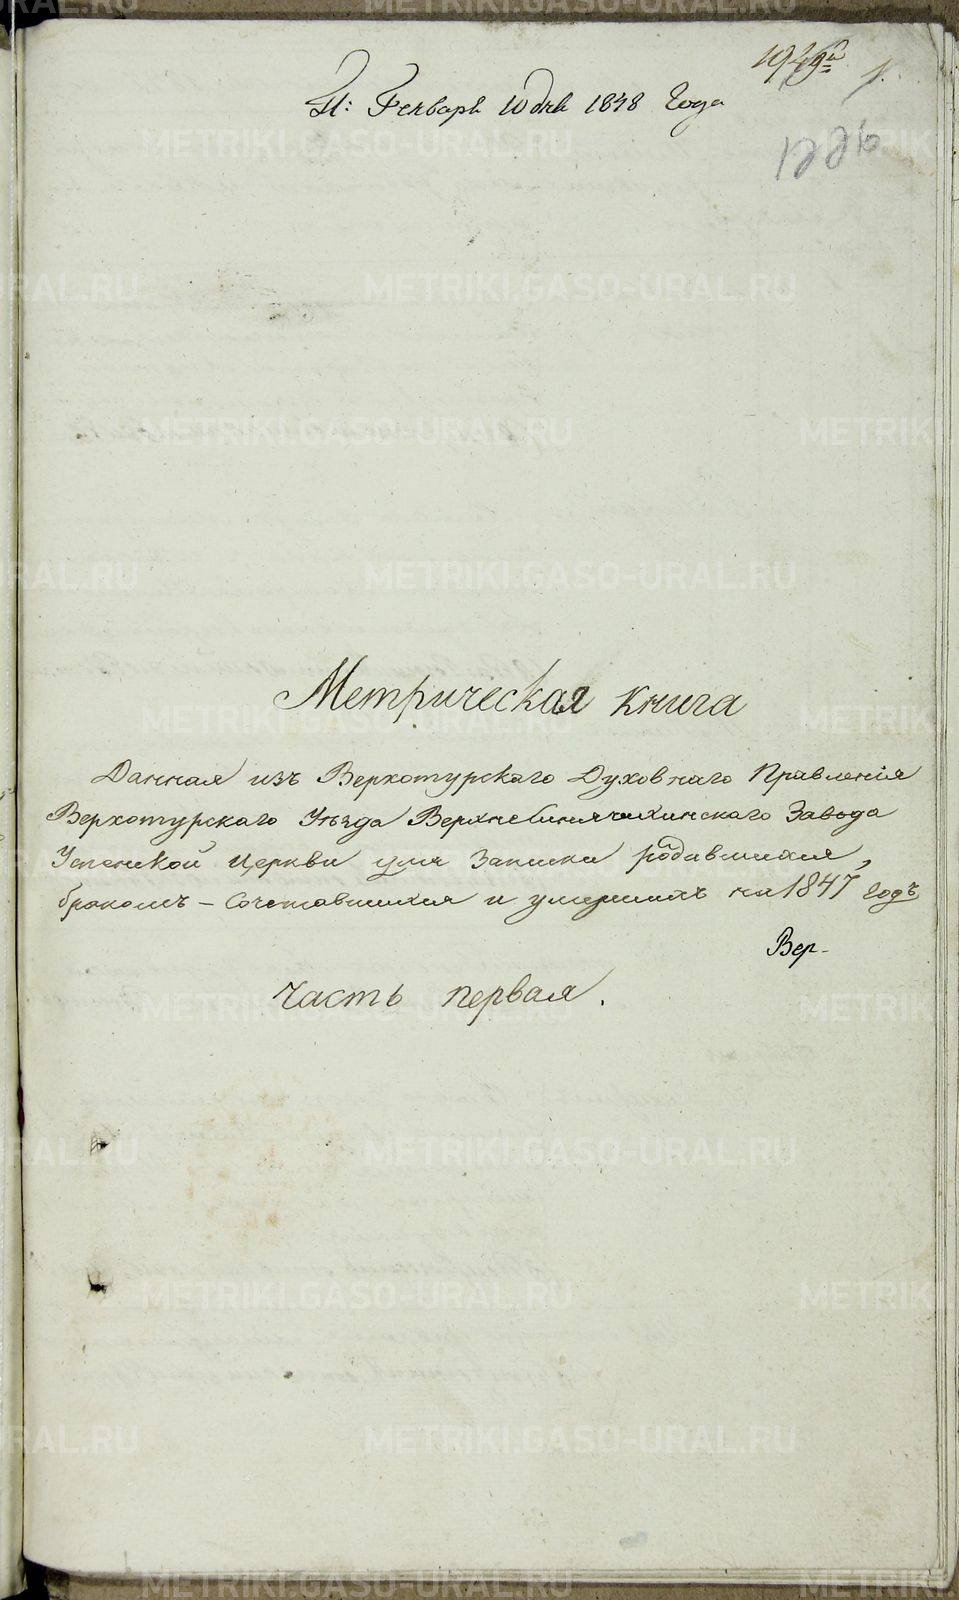 П: Февраля 10 дня 1848 Года
1226
Метрическая книга
Данная изъ Верхотурскаго Духовнаго Правленія
Верхотурскаго Уѣзда Верхнесинячихинскаго Завода
Успенской Церкви для Записки родившихся,
бракомъ – Сочетавшихся и умершихъ на 1847 Годъ
Вер-
Часть первая.
METRIKI.GASO-URAL.RU